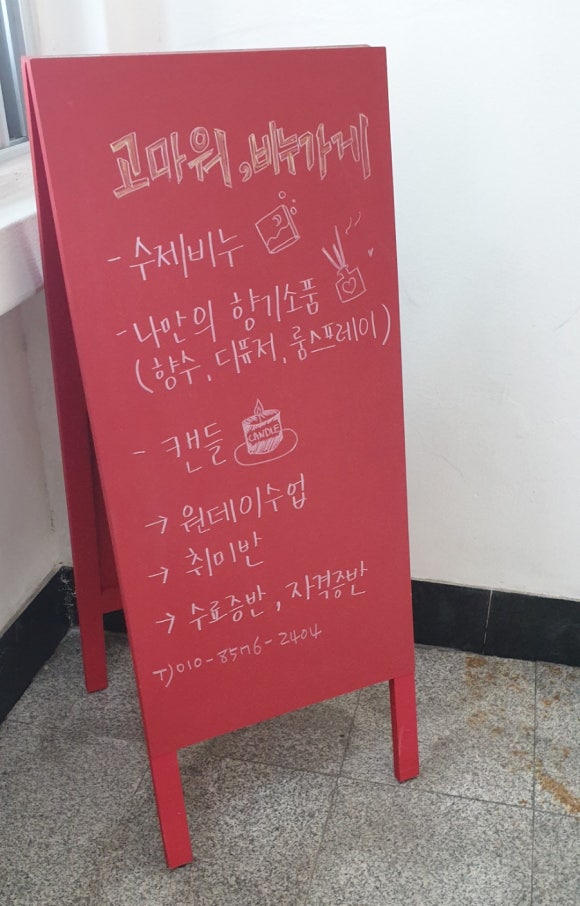 고마워, 비누가게
- 수제비누
- 나만의 향기소품
(향수, 디퓨저, 룸스프레이)
- 캔들
CANDLE
→ 원데이수업
→ 취미반
→ 수료증반, 자격증반
T)010-8576-2404